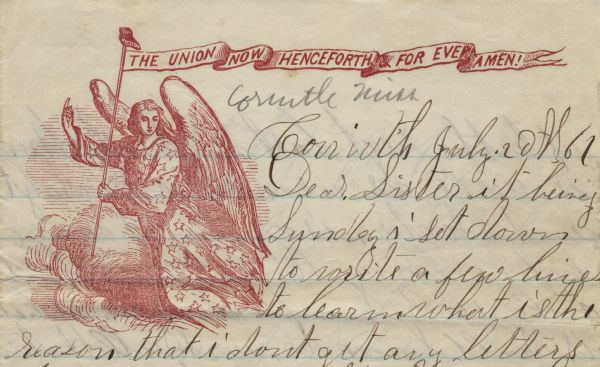 THE UNION NOW HENCEFORTH & FOR EVER AMEN!
Corinth Miss
Corinth July. 20th 62
Dear Sister it being
Sunday i set down
to write a few lines
to learn what is the
reason that i dont get any letters